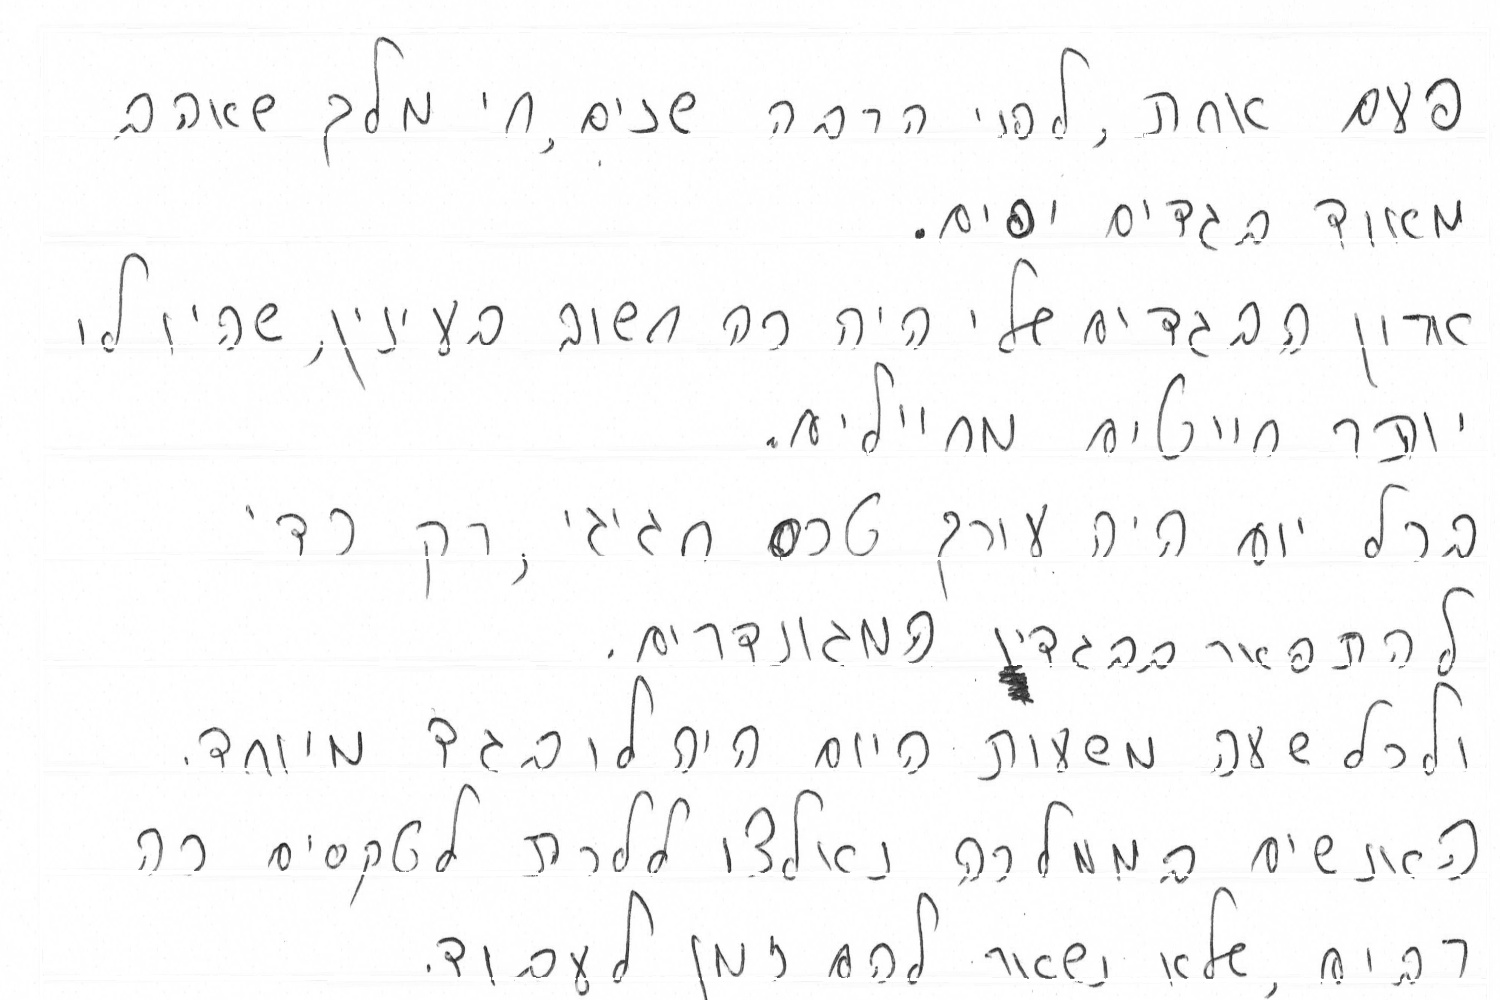 פעם אחת, לפני הרבה שנים, חי מלך שאהב
מאוד בגדים יפים.
ארון הבגדים שלי היה כה חשוב בעיניו, שהיו לו
יותר חייטים מחיילים.
בכל יום היה עורך טכס חגיגי, רק כדי
להתפאר בבגדיו המגונדרים.
ולכל שעה משעות היום היה לו בגד מיוחד.
האנשים בממלכה נאלצו ללכת לטקסים כה
רבים, שלא נשאר להם זמן לעבוד.